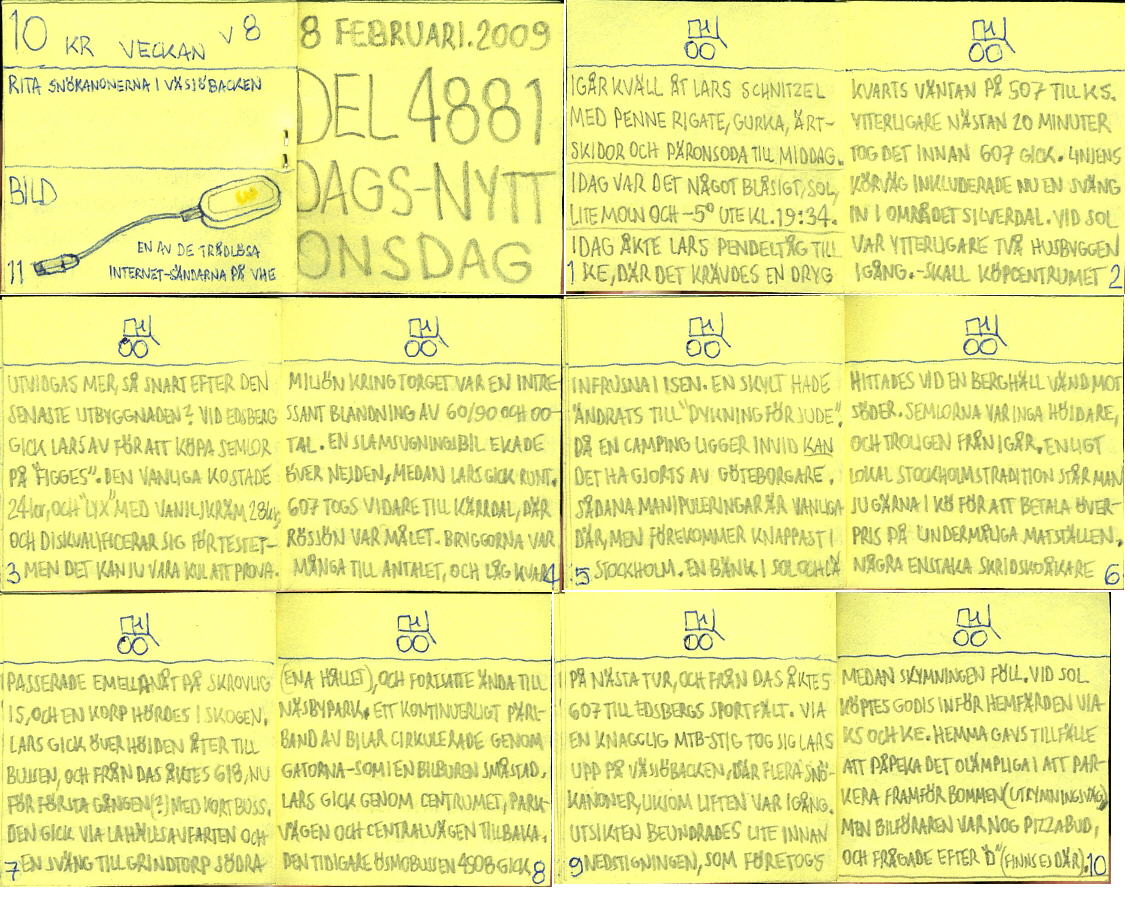 10 KR VECKAN V 8
RITA SNÖKANONERNA I VÄSJÖBACKEN
BILD
EN AV DE TRÅDLÖSA
11 INTERNET-SÄNDARNA PÅ VHE
8 FEBRUARI.2009
DEL 4881
DAGS-NYTT
ONSDAG
IGÅR KVÄLL ÅT LARS SCHNITZEL
MED PENNE RIGATE, GURKA, ÄRT-
SKIDOR OCH PÄRONSODA TILL MIDDAG.
IDAG VAR DET NÅGOT BLÅSIGT, SOL,
LITE MOLN OCH -5° UTE KL. 19:34.
IDAG ÅKTE LARS PENDELTÅG TILL
1 KE, DÄR DET KRÄVDES EN DRYG
KVARTS VÄNTAN PÅ 507 TILL KS.
YTTERLIGARE NÄSTAN 20 MINUTER
TOG DET INNAN 607 GICK. LINJENS
KÖRVÄG INKLUDERADE NU EN SVÄNG
IN I OMRÅDET SILVERDAL. VID SOL
VAR YTTERLIGARE TVÅ HUSBYGGEN
IGÅNG.-SKALL KÖPCENTRUMET 2
UTVIDGAS MER, SÅ SNART EFTER DEN
SENASTE UTBYGGNADEN? VID EDSBERG
GICK LARS AV FÖR ATT KÖPA SEMLOR
PÅ "FIGGES". DEN VANLIGA KOSTADE
24kr, OCH "LYX" MED VANILJKRÄM 28kr,
OCH DISKVALIFICERAR SIG FÖR TESTET-
3 MEN DET KAN JU VARA KUL ATT PROVA.
MILJÖN KRING TORGET VAR EN INTRE-
SSANT BLANDNING AV 60/90 OCH 00-
TAL. EN SLAMSUGNINGSBIL EKADE
ÖVER NEJDEN, MEDAN LARS GICK RUNT.
607 TOGS VIDARE TILL KÄRRDAL, DÄR
RÖSJÖN VAR MÅLET. BRYGGORNA VAR
MÅNGA TILL ANTALET, OCH LÅG KVAR 4
INFRUSNA I ISEN. EN SKYLT HADE
ÄNDRATS TILL "DYKNING FÖR JUDE".
DÅ EN CAMPING LIGGER INVID KAN
DET HA GJORTS AV GÖTEBORGARE.
SÅDANA MANIPULERINGAR ÄR VANLIGA
DÄR, MEN FÖREKOMMER KNAPPAST I
5 STOCKHOLM. EN BÄNK I SOL OCH LÄ
HITTADES VID EN BERGHÄLL VÄND MOT
SÖDER. SEMLORNA VAR INGA HÖJDARE,
OCH TROLIGEN FRÅN IGÅR. ENLIGT
LOKAL STOCKHOLMSTRADITION STÅR MAN
JU GÄRNA I KÖ FÖR ATT BETALA ÖVER-
PRIS PÅ UNDERMÅLIGA MATSTÄLLEN.
NÅGRA ENSTAKA SKRIDSKOÅKARE 6
PASSERADE EMELLANÅT PÅ SKROVLIG
IS, OCH EN KORP HÖRDES I SKOGEN.
LARS GICK ÖVER HÖJDEN ÅTER TILL
BUSSEN, OCH FRÅN DAS ÅKTES 618, NU
FÖR FÖRSTA GÅNGEN(?) MED KORT BUSS.
DEN GICK VIA LAHÄLLSAVFARTEN OCH
7 EN SVÄNG TILL GRINDTORP SÖDRA
(ENA HÅLLET), OCH FORTSATTE ÄNDA TILL
NÄSBYPARK. ETT KONTINUERLIGT PÄRL-
BAND AV BILAR CIRKULERADE GENOM
GATORNA-SOM I EN BILBUREN SMÅSTAD.
LARS GICK GENOM CENTRUMET, PARK-
VÄGEN OCH CENTRALVÄGEN TILLBAKA.
DEN TIDIGARE ÖSMOBUSSEN 4508 GICK 8
PÅ NÄSTA TUR, OCH FRÅN DAS ÅKTES
607 TILL EDSBERGS SPORTFÄLT. VIA
EN KNAGGLIG MTB-STIG TOG SIG LARS
UPP PÅ VÄSJÖBACKEN, DÄR FLERA SNÖ-
KANONER, LIKSOM LIFTEN VAR IGÅNG.
UTSIKTEN BEUNDRADES LITE INNAN
9 NEDSTIGNINGEN, SOM FÖRETOGS
MEDAN SKYMNINGEN FÖLL. VID SOL
KÖPTES GODIS INFÖR HEMFÄRDEN VIA
KS OCH KE. HEMMA GAVS TILLFÄLLE
ATT PÅPEKA DET OLÄMPLIGA I ATT PAR-
KERA FRAMFÖR BOMMEN (UTRYMNINGSVÄG),
MEN BILFÖRAREN VAR NOG PIZZABUD,
OCH FRÅGADE EFTER "D" (FINNS EJ DÄR). 10